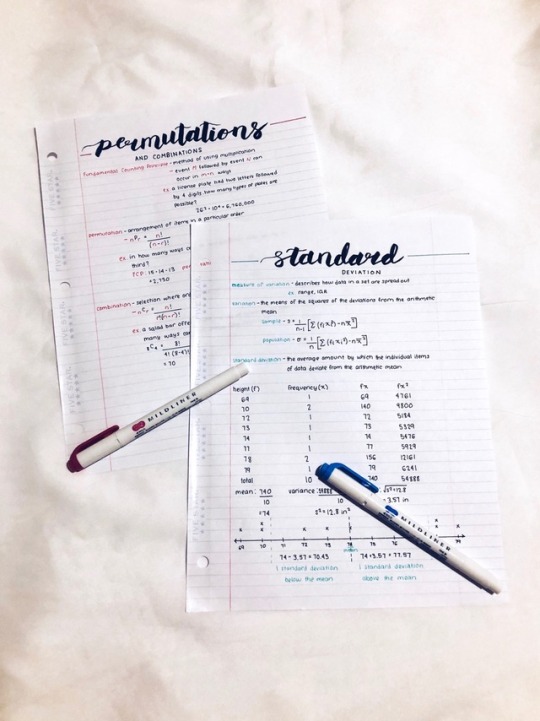 permutations
AND COMBINATIONS
Fundamental Counting Principle - method of using multiplication
- event M followed by event N can
occur in m×n ways
ex a license plate had two letters followed
by 4 digits. how many types of plates are
possible?
26² · 10⁴ = 6,760,000
permutation - arrangement of items in a particular order
- nPr = n!
(n-r)!
ex. in how many ways
third?
FCP: 15·14·13
= 2,730
combination - selection where
- nCr = n!
r!(n-r)!
ex a salad bar
many ways
8C4 = 8!
4!(8-4)!
= 70
FIVE STAR
MILDLINER
standard
DEVIATION
measure of variation - describes how data in a set are spread out
ex range, IQR
variation - the means of the square of the deviations from the arithmetic
mean
sample - s = 1/n-1 [Σ(fᵢxᵢ²) - nx̄²]
population - σ = 1/n [Σ(fᵢxᵢ²) - nx̄²]
standard deviation - the average amount by which the individual items
of data deviate from the arithmetic mean
height (F) frequency (x) fx fx²
69 1 69 4761
70 2 140 9800
72 1 72 5184
73 1 73 5329
74 1 74 5476
77 1 77 5929
78 2 156 12161
79 1 79 6241
total 10 740 54888
mean: 740 variance: √s²=12.8
10 10 = 3.57 in
= 74 s² = 12.8 in²
x x x x x x
69 70 71 72 73 74 75 76 79
mean
74 - 3.57 = 70.43 74 + 3.57 = 77.57
1 standard deviation 1 standard deviation
below the mean above the mean
MILDLINER